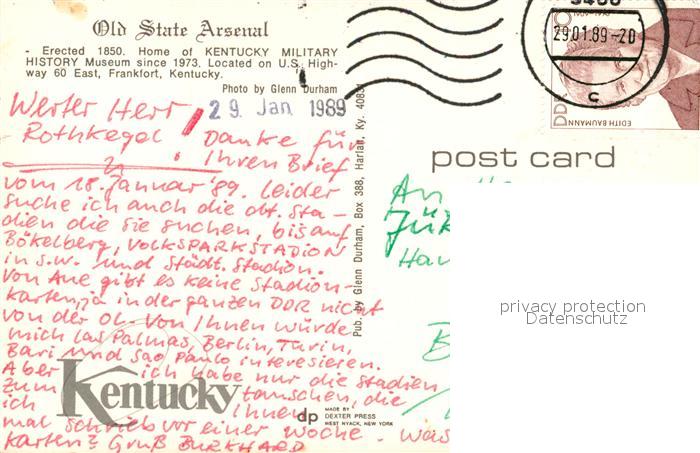 Old State Arsenal
- Erected 1850. Home of KENTUCKY MILITARY
HISTORY Museum since 1973. Located on U.S. High-
way 60 East, Frankfort, Kentucky.
Photo by Glenn Durham
29. Jan. 1989
Werter Herr
Rothkegel! Danke für
Ihren Brief
vom 18. Januar '89. Leider
suche ich auch die obt. Sta-
dien die Sie suchen, bis auf
Bökelberg, VOLKSPARKSTADION
in s.w. und Städt. Stadion.
Von Aue gibt es keine Stadion-
karten, ja in der ganzen DDR nicht
von der OL. Von Ihnen würde
mich Las Palmas, Berlin, Turin,
Bari und Sao Paulo interesieren.
Aber ich habe nur die Stadien
zum tauschen, die
ich Ihnen
mal schrieb vor einer Woche. Was
Karten? Gruß BURKHARD
Kentucky
dp
MADE BY
DEXTER PRESS
WEST NYACK, NEW YORK
Pub. by Glenn Durham, Box 388, Harlan, Ky. 40831
29.01.89-20
c
DDR
EDITH BAUMANN
post card
An
privacy protection
Datenschutz